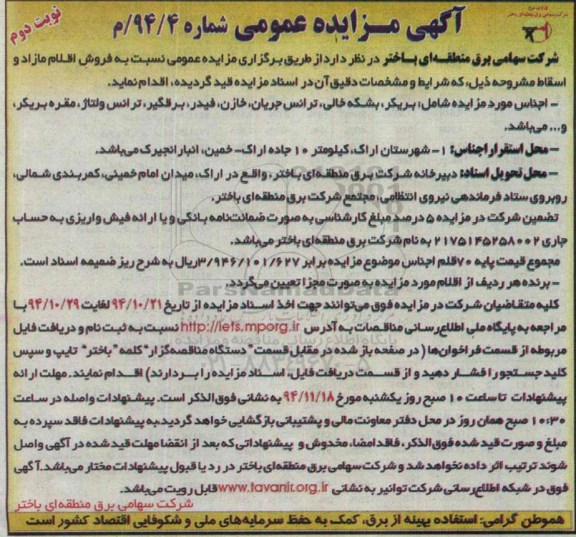 آگهی مزایده عمومی شماره ۹۴/۴/م
نوبت دوم
شرکت سهامی برق منطقه‌ای باختر در نظر دارد از طریق برگزاری مزایده عمومی نسبت به فروش اقلام مازاد و
اسقاط مشروحه ذیل، که شرایط و مشخصات دقیق آن در اسناد مزایده قید گردیده، اقدام نماید.
– اجناس مورد مزایده شامل: بریکر، بشکه خالی، ترانس جریان، خازن، فیدر، برقگیر، ترانس ولتاژ، مقره بریکر،
و... می‌باشد.
– محل استقرار اجناس: ۱- شهرستان اراک، کیلومتر ۱۰ جاده اراک- خمین، انبار انجیرک می‌باشد.
– محل تحویل اسناد: دبیرخانه شرکت برق منطقه‌ای باختر، واقع در اراک، میدان امام خمینی، کمربندی شمالی،
روبروی ستاد فرماندهی نیروی انتظامی، مجتمع شرکت برق منطقه‌ای باختر.
تضمین شرکت در مزایده ۵ درصد مبلغ کارشناسی به صورت ضمانت‌نامه بانکی و یا ارائه فیش واریزی به حساب
جاری ۲۱۷۵۱۴۵۲۵۸۰۰۲ به نام شرکت برق منطقه‌ای باختر می‌باشد.
مجموع قیمت پایه ۷۰ قلم اجناس موضوع مزایده برابر ۳/۹۴۶/۱۰۱/۶۲۷ ریال به شرح ریز ضمیمه اسناد است.
– برنده هر ردیف از اقلام مورد مزایده به صورت مجزا تعیین می‌گردد.
کلیه متقاضیان شرکت در مزایده فوق می‌توانند جهت اخذ اسناد مزایده از تاریخ ۹۴/۱۰/۲۱ لغایت ۹۴/۱۰/۲۹ با
مراجعه به پایگاه ملی اطلاع‌رسانی مناقصات به آدرس http://iets.mporg.ir نسبت به ثبت نام و دریافت فایل
مربوطه از قسمت فراخوان‌ها (در صفحه باز شده در مقابل قسمت "دستگاه مناقصه‌گزار" کلمه "باختر" تایپ و سپس
کلید جستجو را فشار دهید و از قسمت دریافت فایل، اسناد مزایده را بردارند) اقدام نمایند. مهلت ارائه
پیشنهادات تا ساعت ۱۰ صبح روز یکشنبه مورخ ۹۴/۱۱/۱۸ به نشانی فوق الذکر است. پیشنهادات واصله در ساعت
۱۰:۳۰ صبح همان روز در محل دفتر معاونت مالی و پشتیبانی بازگشایی خواهد گردید. به پیشنهادات فاقد سپرده به
مبلغ و صورت قید شده فوق الذکر، فاقد امضا، مخدوش و پیشنهاداتی که بعد از انقضا مهلت قید شده در آگهی واصل
شوند ترتیب اثر داده نخواهد شد و شرکت سهامی برق منطقه‌ای باختر در رد یا قبول پیشنهادات مختار می‌باشد. آگهی
فوق در شبکه اطلاع‌رسانی شرکت توانیر به نشانی www.tavanir.org.ir قابل رویت می‌باشد.
شرکت سهامی برق منطقه‌ای باختر
هموطن گرامی: استفاده بهینه از برق، کمک به حفظ سرمایه‌های ملی و شکوفایی اقتصاد کشور است